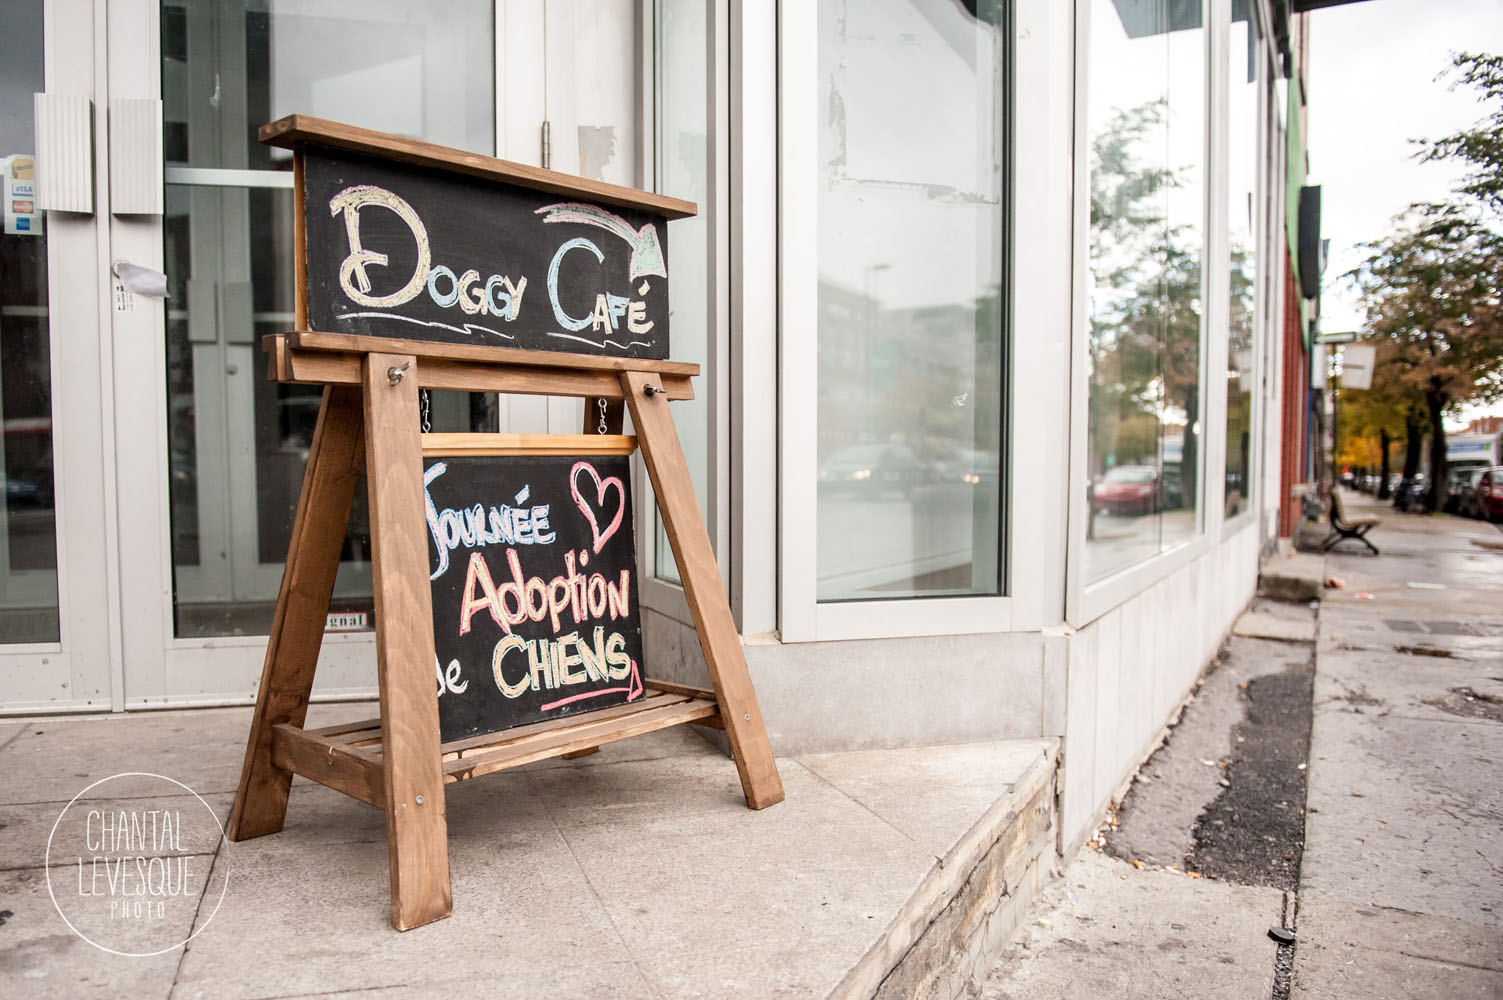 Doggy Café
Journée
Adoption
de Chiens
VISA
gnal
CHANTAL
LEVESQUE
PHOTO